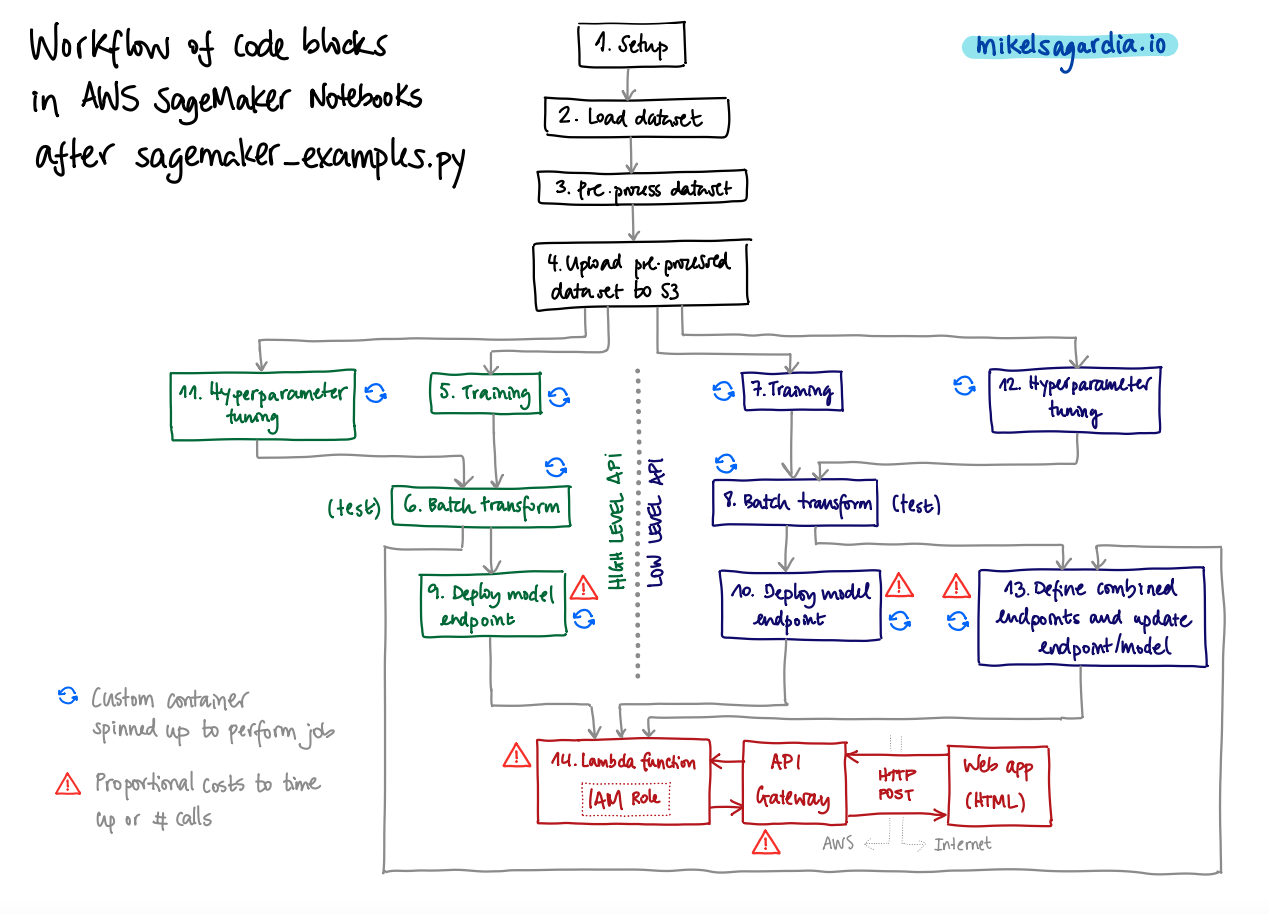 Workflow of code blocks
in AWS SageMaker Notebooks
after sagemaker_examples.py
mikelsagardia.io
1. Setup
2. Load dataset
3. Pre-process dataset
4. Upload pre-processed
dataset to S3
11. Hyperparameter
tuning
5. Training
7. Training
12. Hyperparameter
tuning
HIGH LEVEL API
LOW LEVEL API
(test)
6. Batch transform
8. Batch transform
(test)
9. Deploy model
endpoint
10. Deploy model
endpoint
13. Define combined
endpoints and update
endpoint/model
Custom container
spinned up to perform job
Proportional costs to time
up or # calls
14. Lambda function
IAM Role
API
Gateway
HTTP
POST
Web app
(HTML)
AWS
Internet